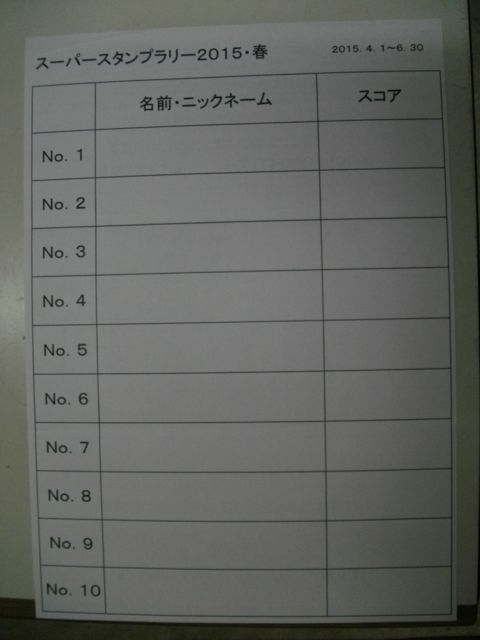 スーパースタンプラリー2015・春 2015. 4. 1～6. 30
名前・ニックネーム スコア
No. 1
No. 2
No. 3
No. 4
No. 5
No. 6
No. 7
No. 8
No. 9
No. 10